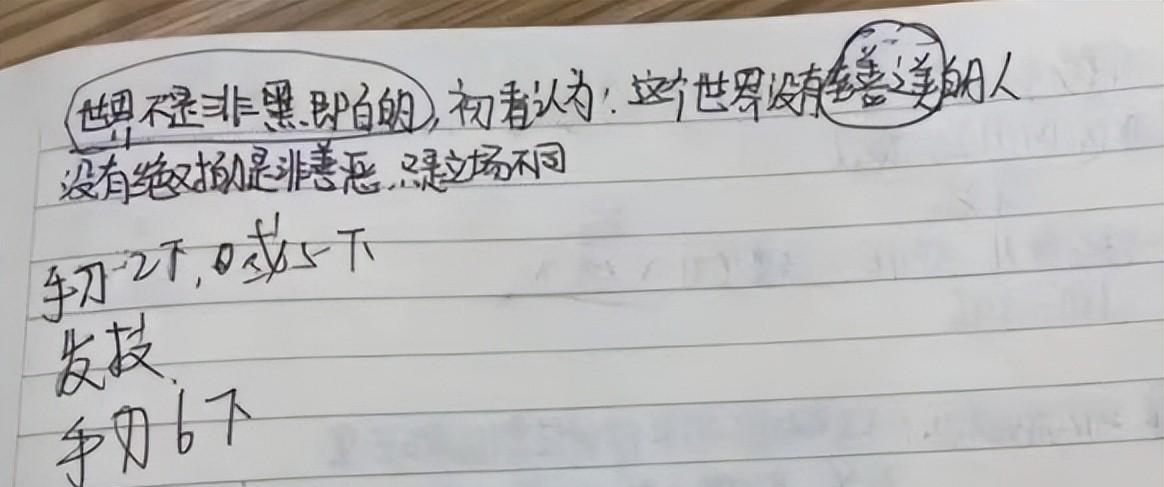 世界不是非黑即白的,初看认为:这个世界没有至善之美的人
没有绝对的是非善恶.只是立场不同
手刃2下,0或5下
发技.
手刃6下